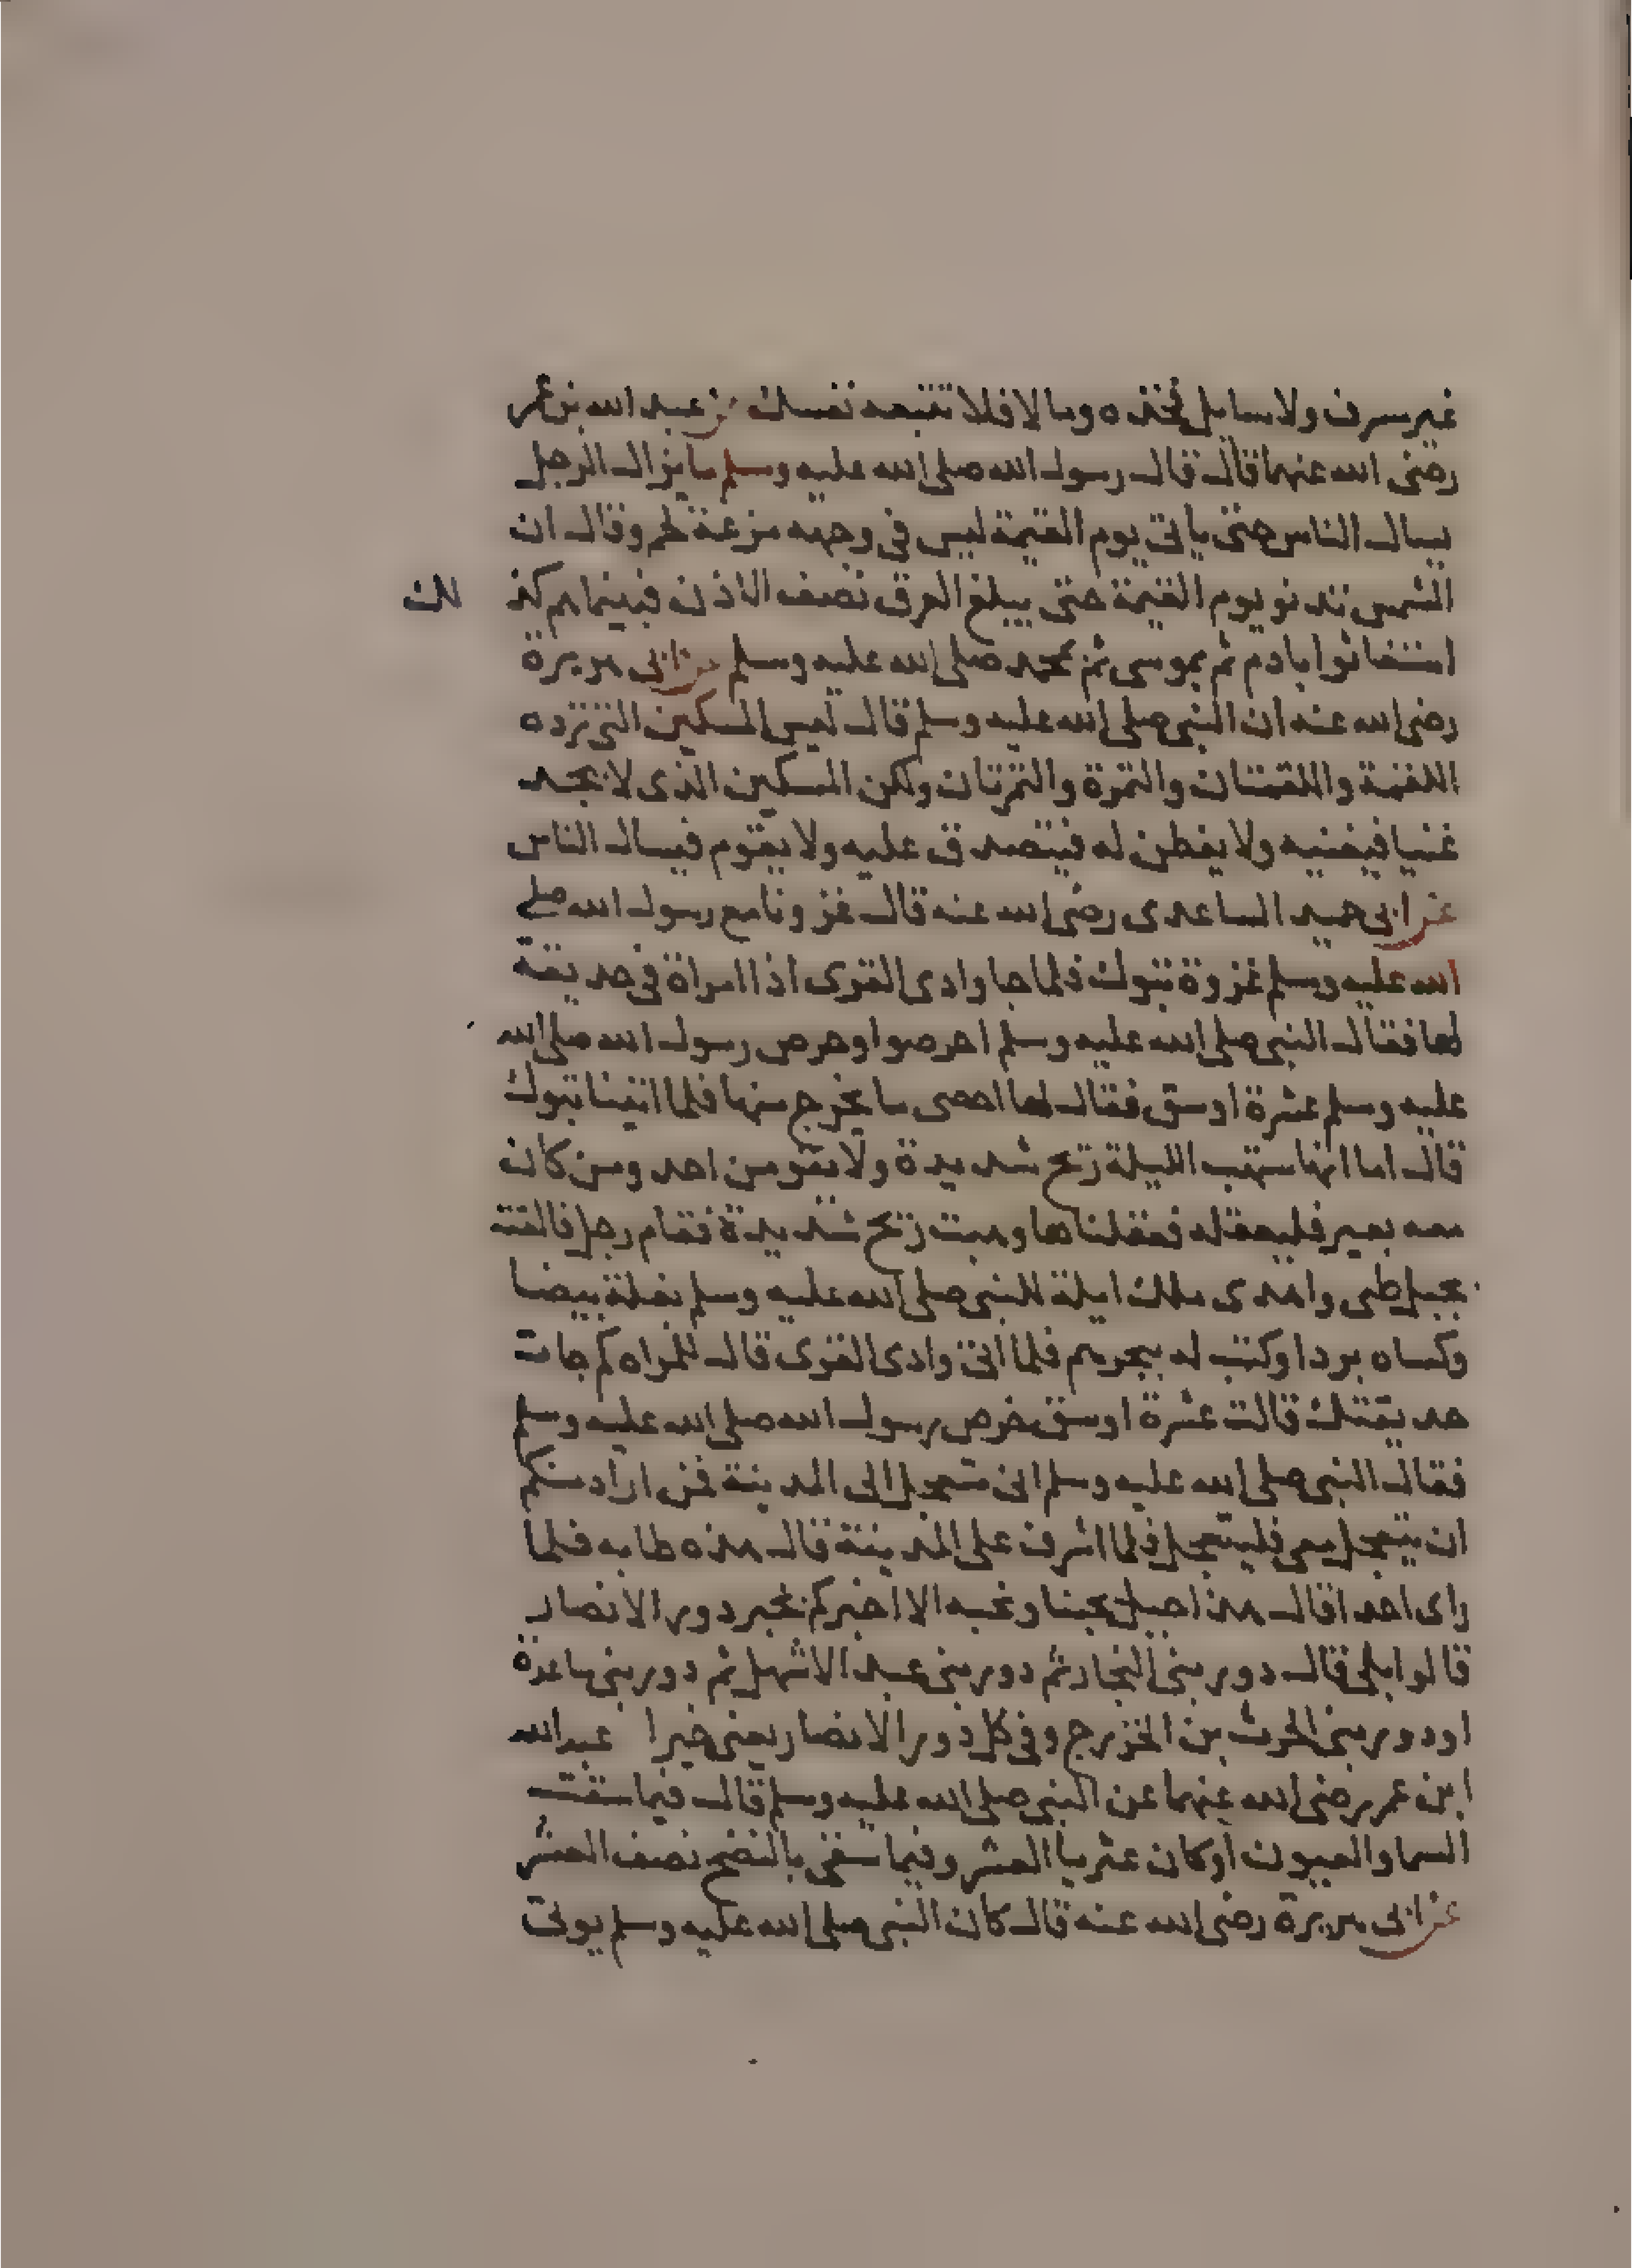 غير مسرف ولا سايل فخذه وما لا فلا تتبعه نفسك عن عبد الله بن عمر
رضى الله عنهما قال قال رسول الله صلى الله عليه وسلم ما يزال الرجل
يسال الناس حتى ياتى يوم القيمة ليس فى وجهه مزعة لحم وقال ان
الشمس تدنو يوم القيمة حتى يبلغ العرق نصف الاذن فبينما هم كذ لك
استغاثوا بادم ثم بموسى ثم بمحمد صلى الله عليه وسلم عن ابى هريرة
رضى الله عنه ان النبى صلى الله عليه وسلم قال ليس المسكين التى ترده
اللقمة واللقمتان والتمرة والتمرتان ولكن المسكين الذى لا يجد
غنيا فيغنيه ولا يفطن له فيتصدق عليه ولا يقوم فيسال الناس
عن ابى حميد الساعدى رضى الله عنه قال غزونا مع رسول الله صلى
الله عليه وسلم غزوة تبوك فلما جا وادى القرى اذا امراة فى حديقة
لها فقال النبى صلى الله عليه وسلم احرصوا وخرص رسول الله صلى الله
عليه وسلم عشرة اوسق فقال لها احصى ما يخرج منها فلما اتينا تبوك
قال اما انها ستهب الليلة ريح شديدة ولا يقومن احد ومن كان
معه بعير فليعقله فعقلناها وهبت ريح شديدة فقام رجل فالقته
بجبل طى واهدى ملك ايلة للنبى صلى الله عليه وسلم بغلة بيضا
وكساه بردا وكتب له ببحرهم فلما اتى وادى القرى قال للمراه كم جات
حديقتك قالت عشرة اوسق خرص رسول الله صلى الله عليه وسلم
فقال النبى صلى الله عليه وسلم انى متعجل الى المدينة فمن اراد منكم
ان يتعجل معى فليتعجل فلما اشرف على المدينة قال هذه طابه فلما
راى احدا قال هذا جبل يحبنا ونحبه الا اخبركم بخير دور الانصار
قالوا بلى قال دور بنى النجار ثم دور بنى عبد الاشهل ثم دور بنى ساعدة
او دور بنى الحرث بن الخزرج وفى كل دور الانصار يعنى خيرا عبد الله
ابن عمر رضى الله عنهما عن النبى صلى الله عليه وسلم قال فيما سقت
السما والعيون او كان عثريا العشر وفيما سقى بالنضح نصف العشر
عن ابى هريرة رضى الله عنه قال كان النبى صلى الله عليه وسلم يوتى